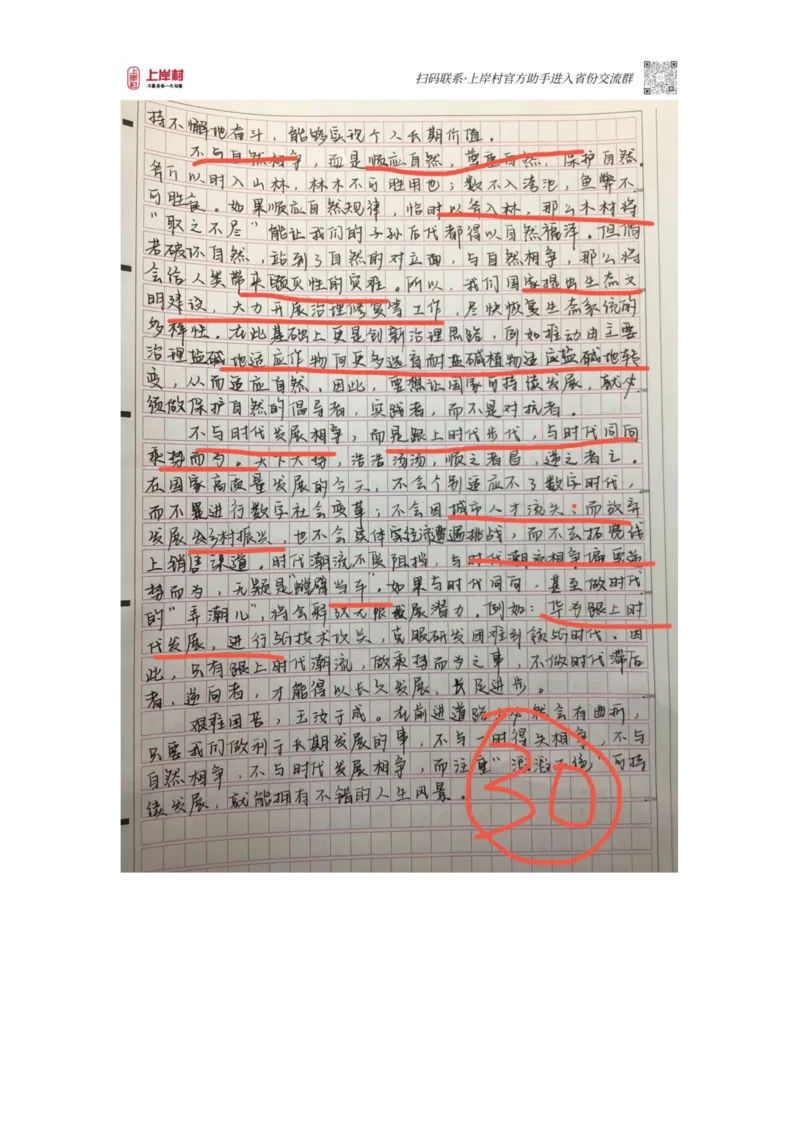 上岸村
不辜负每一代任遇
扫码联系·上岸村官方助手进入省份交流群
持不懈地奋斗，能够实现个人长期价值。
不与自然相争，而是顺应自然，尊重自然，保护自然。
斧斤以时入山林，林木不可胜用也；数不入洿池，鱼鳖不
可胜食。如果顺应自然规律，恰时以斧入林，那么木材将
“取之不尽”能让我们的子孙后代都得以自然福泽。但倘
若破坏自然，站到了自然的对立面，与自然相争，那么将
会给人类带来颠灭性的灾难。所以，我们国家提出生态文
明建设，大力开展治理修复等工作，尽快恢复生态系统的
多样性。在此基础上更是创新治理思路，例如推动由主要
治理盐碱地适应作物向更多选育耐盐碱植物适应盐碱地转
变，从而适应自然。因此，要想让国家可持续发展，就必
须做保护自然的倡导者，实践者，而不是对抗者。
不与时代发展相争，而是跟上时代步伐，与时代同向
乘势而为。天下大势，浩浩汤汤，顺之者昌，逆之者亡。
在国家高质量发展的今天，不会个别适应不了数字时代，
而不是进行数字社会变革；不会因城市人才流失：而放弃
发展乡村振兴，也不会实体实经济遭遇挑战，而不去拓宽线
上销售渠道。时代潮流不畏阻挡，与时代潮流相争偏要逆
势而为，无疑是“螳臂当车”。如果与时代同向，甚至做时代
的“弄潮儿”，将会释放无限发展潜力。例如：华为跟上时
代发展，进行5G技术攻关，克服研发困难引领5G时代。因
此，只有跟上时代潮流，做乘势而为之事，不做时代滞后
者，逆向者，才能得以长久发展，长足进步。
艰难困苦，玉汝于成。在前进道路，必然会有曲折，
只要我们做利于长期发展的事，不与一时得失相争，不与
自然相争，不与时代发展相争，而注重“滔滔不绝”可持
续发展，就能拥有不错的人生风景。
30